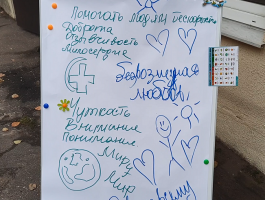 Помогать людям бескорыстно
Доброта
Отзывчивость
Милосердие
Безвозмездная
любовь
Чуткость
Внимание
Понимание
Миру
Мир